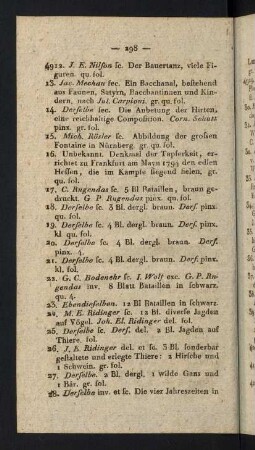 — 298 —
4912. J. E. Nilson sc. Der Bauertanz, viele Fi-
guren. qu. fol.
13. Jac. Mechan fec. Ein Bacchanal, bestehend
aus Faunen, Satyrn, Bacchantinnen und Kin-
dern, nach Jul. Carpioni. gr. qu. fol.
14. Derselbe fec. Die Anbetung der Hirten,
eine reichhaltige Composition. Corn. Schutt
pinx. gr. fol.
15. Mich. Rösler sc. Abbildung der grosen
Fontaine in Nürnberg. gr. qu. fol.
16. Unbekannt. Denkmal der Tapferkeit, er-
richtet zu Frankfurt am Mayn 1793 den edlen
Hessen, die im Kampfe siegend fielen, gr.
qu. fol.
17. C. Rugendas sc. 5 Bl Bataillen, braun ge-
druckt. G P. Rugendas pinx. qu. fol.
18. Derselbe sc. 3 Bl. dergl. braun. Ders.
pinx. qu. fol.
19. Derselbe sc. 4 Bl. dergl. braun. Ders. pinx.
kl. qu. fol.
20. Derselbe sc. 4 Bl. dergl. braun. Ders.
pinx. 4.
21. Derselbe sc. 2 Bl. dergl. braun. Ders. pinx.
kl. fol.
22. G. C. Bodenehr sc. J. Wolf exc. G. P. Ru-
gendas inv. 8 Blatt Bataillen in schwarz.
qu. 4.
23. Ebendieselben. 12 Bl Bataillen in schwarz.
24. M. E. Ridinger sc. 12 Bl. diverse Jagden
auf Vögel. Joh. El. Ridinger del. fol.
25. Derselbe sc. Ders. del. 2 Bl. Jagden auf
Thiere. fol.
26. J. E. Ridinger del. et sc. 3 Bl. sonderbar
gestaltete und erlegte Thiere: 2 Hirsche und
1 Schwein. gr. fol.
27. Derselbe. 2 Bl. dergl. 1 wilde Gans und
1 Bär. gr. fol.
28. Derselbe inv. et sc. Die vier Jahreszeiten in